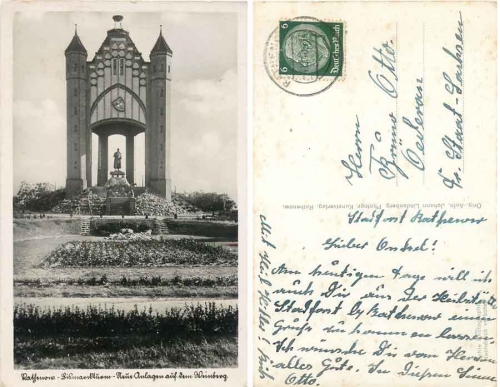 Rathenow - Bismarckturm - Neue Anlagen auf dem Weinberg.
6
Deutsches Reich
6
Herrn
Bruno Otto
Oederan
Str. Staat-Sachsen
Orig.-Aufn. Johann Lindenberg Photogr. Kunstverlag, Rathenow.
Stadtforst Rathenow
Lieber Onkel!
Am heutigen Tage will ich
auch Dir aus der
Stadtforst by Rathenow einen
Gruß zukommen lassen.
Ich wünsche Dir von Herzen
alles Gute. In diesem Sinne
Otto.